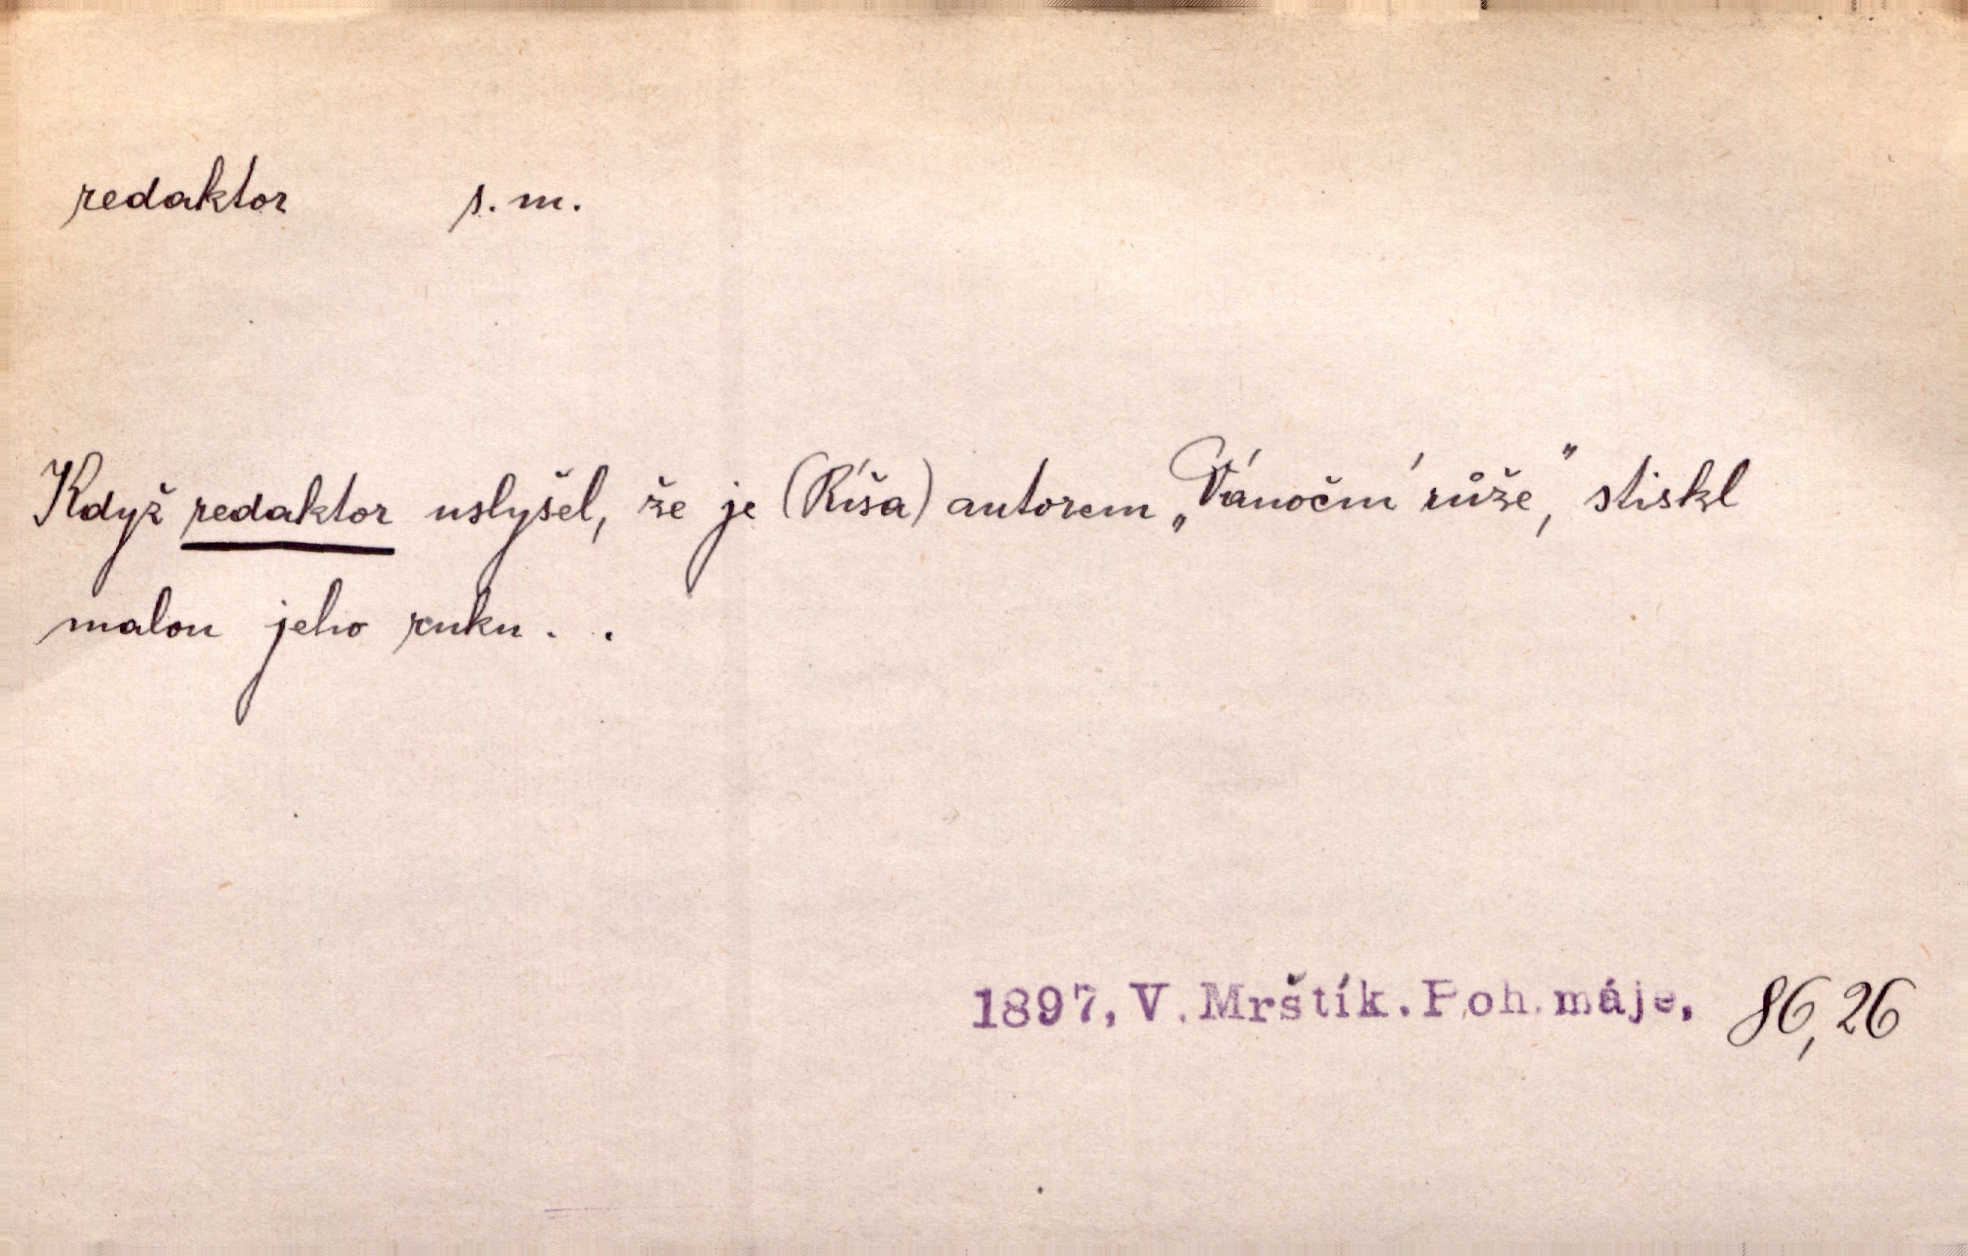 redaktor s. m.
Když redaktor uslyšel, že je (Ríša) autorem „Vánoční růže,” stiskl
malou jeho ruku. .
1897, V. Mrštík. Poh. máje, 86, 26